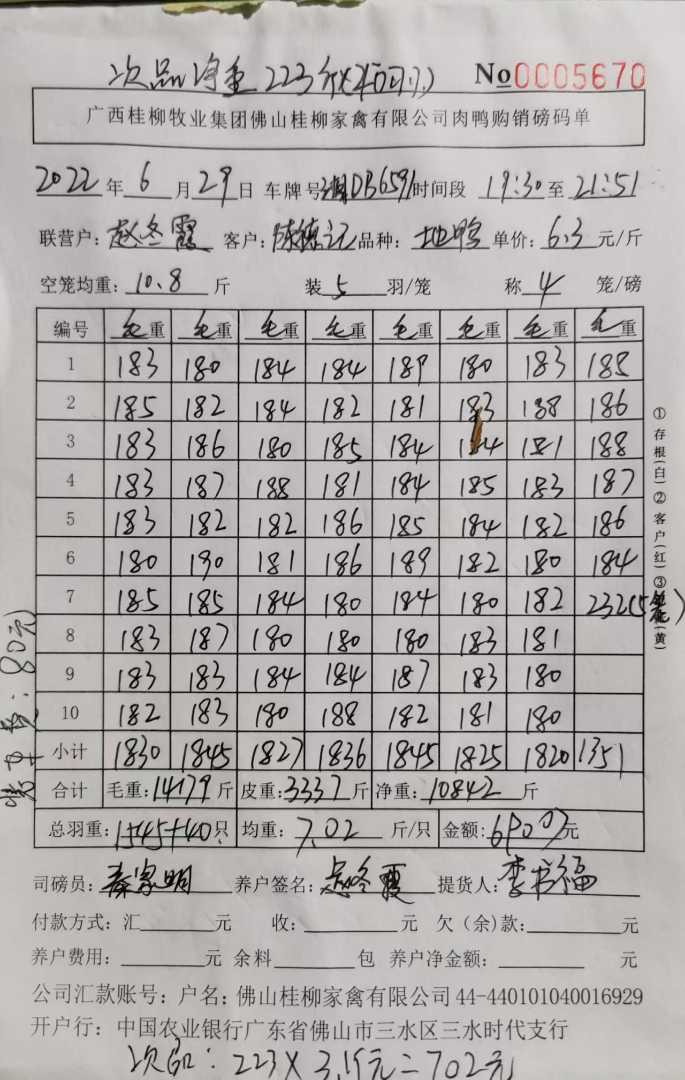 次品净重223斤 №0005670
广西桂柳牧业集团佛山桂柳家禽有限公司肉鸭购销磅码单
2022年6月29日 车牌号湘DB6591时间段 19:30至21:51
联营户:赵冬霞 客户:陈德记 品种:土鸭 单价:6.3元/斤
空笼均重:10.8斤 装5羽/笼 称4笼/磅
编号 毛重 毛重 毛重 毛重 毛重 毛重 毛重 毛重
1 183 180 184 184 189 180 183 188
2 185 182 184 182 181 183 188 186
3 183 186 180 185 184 184 181 188
4 183 187 188 181 184 185 183 187
5 183 182 182 186 185 184 182 186
6 180 190 181 186 189 182 180 184
7 185 185 184 180 184 180 182 232(5笼)
8 183 187 180 180 180 183 181
9 183 183 184 184 187 183 180
10 182 183 180 188 182 181 180
小计 1830 1845 1827 1836 1845 1825 1820 1351
合计 毛重:14179斤 皮重:3337斤 净重:10842斤
总羽重:1545+40只 均重:7.02斤/只 金额: 元
司磅员:秦家明 养户签名:赵冬霞 提货人:李书福
付款方式:汇 元 收: 元 欠(余)款: 元
养户费用: 元 余料 包 养户净金额: 元
公司汇款账号:户名:佛山桂柳家禽有限公司44-440101040016929
开户行:中国农业银行广东省佛山市三水区三水时代支行
次品:223×3.15元=702元
①存根(白)②客户(红)③ (黄)
80元